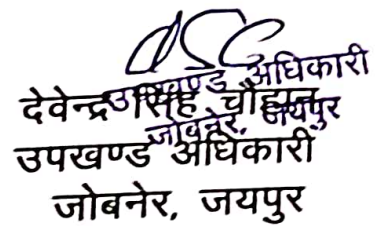 उपखण्ड अधिकारी
जोबनेर, जयपुर
देवेन्द्र सिंह चौहान
उपखण्ड अधिकारी
जोबनेर, जयपुर